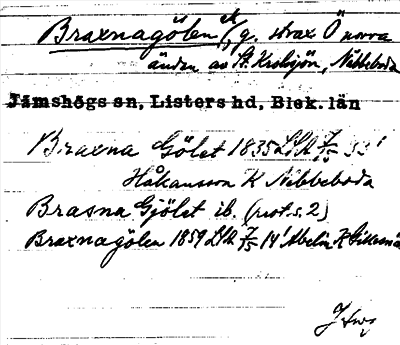 Braxnagölen, g. strax Ö norra
änden av St. Kroksjön, Nebbeboda
Jämshögs sn, Listers hd, Blek. län
Braxna Gölet 1835 LSA
Håkansson K Nebbeboda
Brasna Gjölet ib. (prot. s. 2)
Braxnagölen 1859 LSA 14' Abelin K